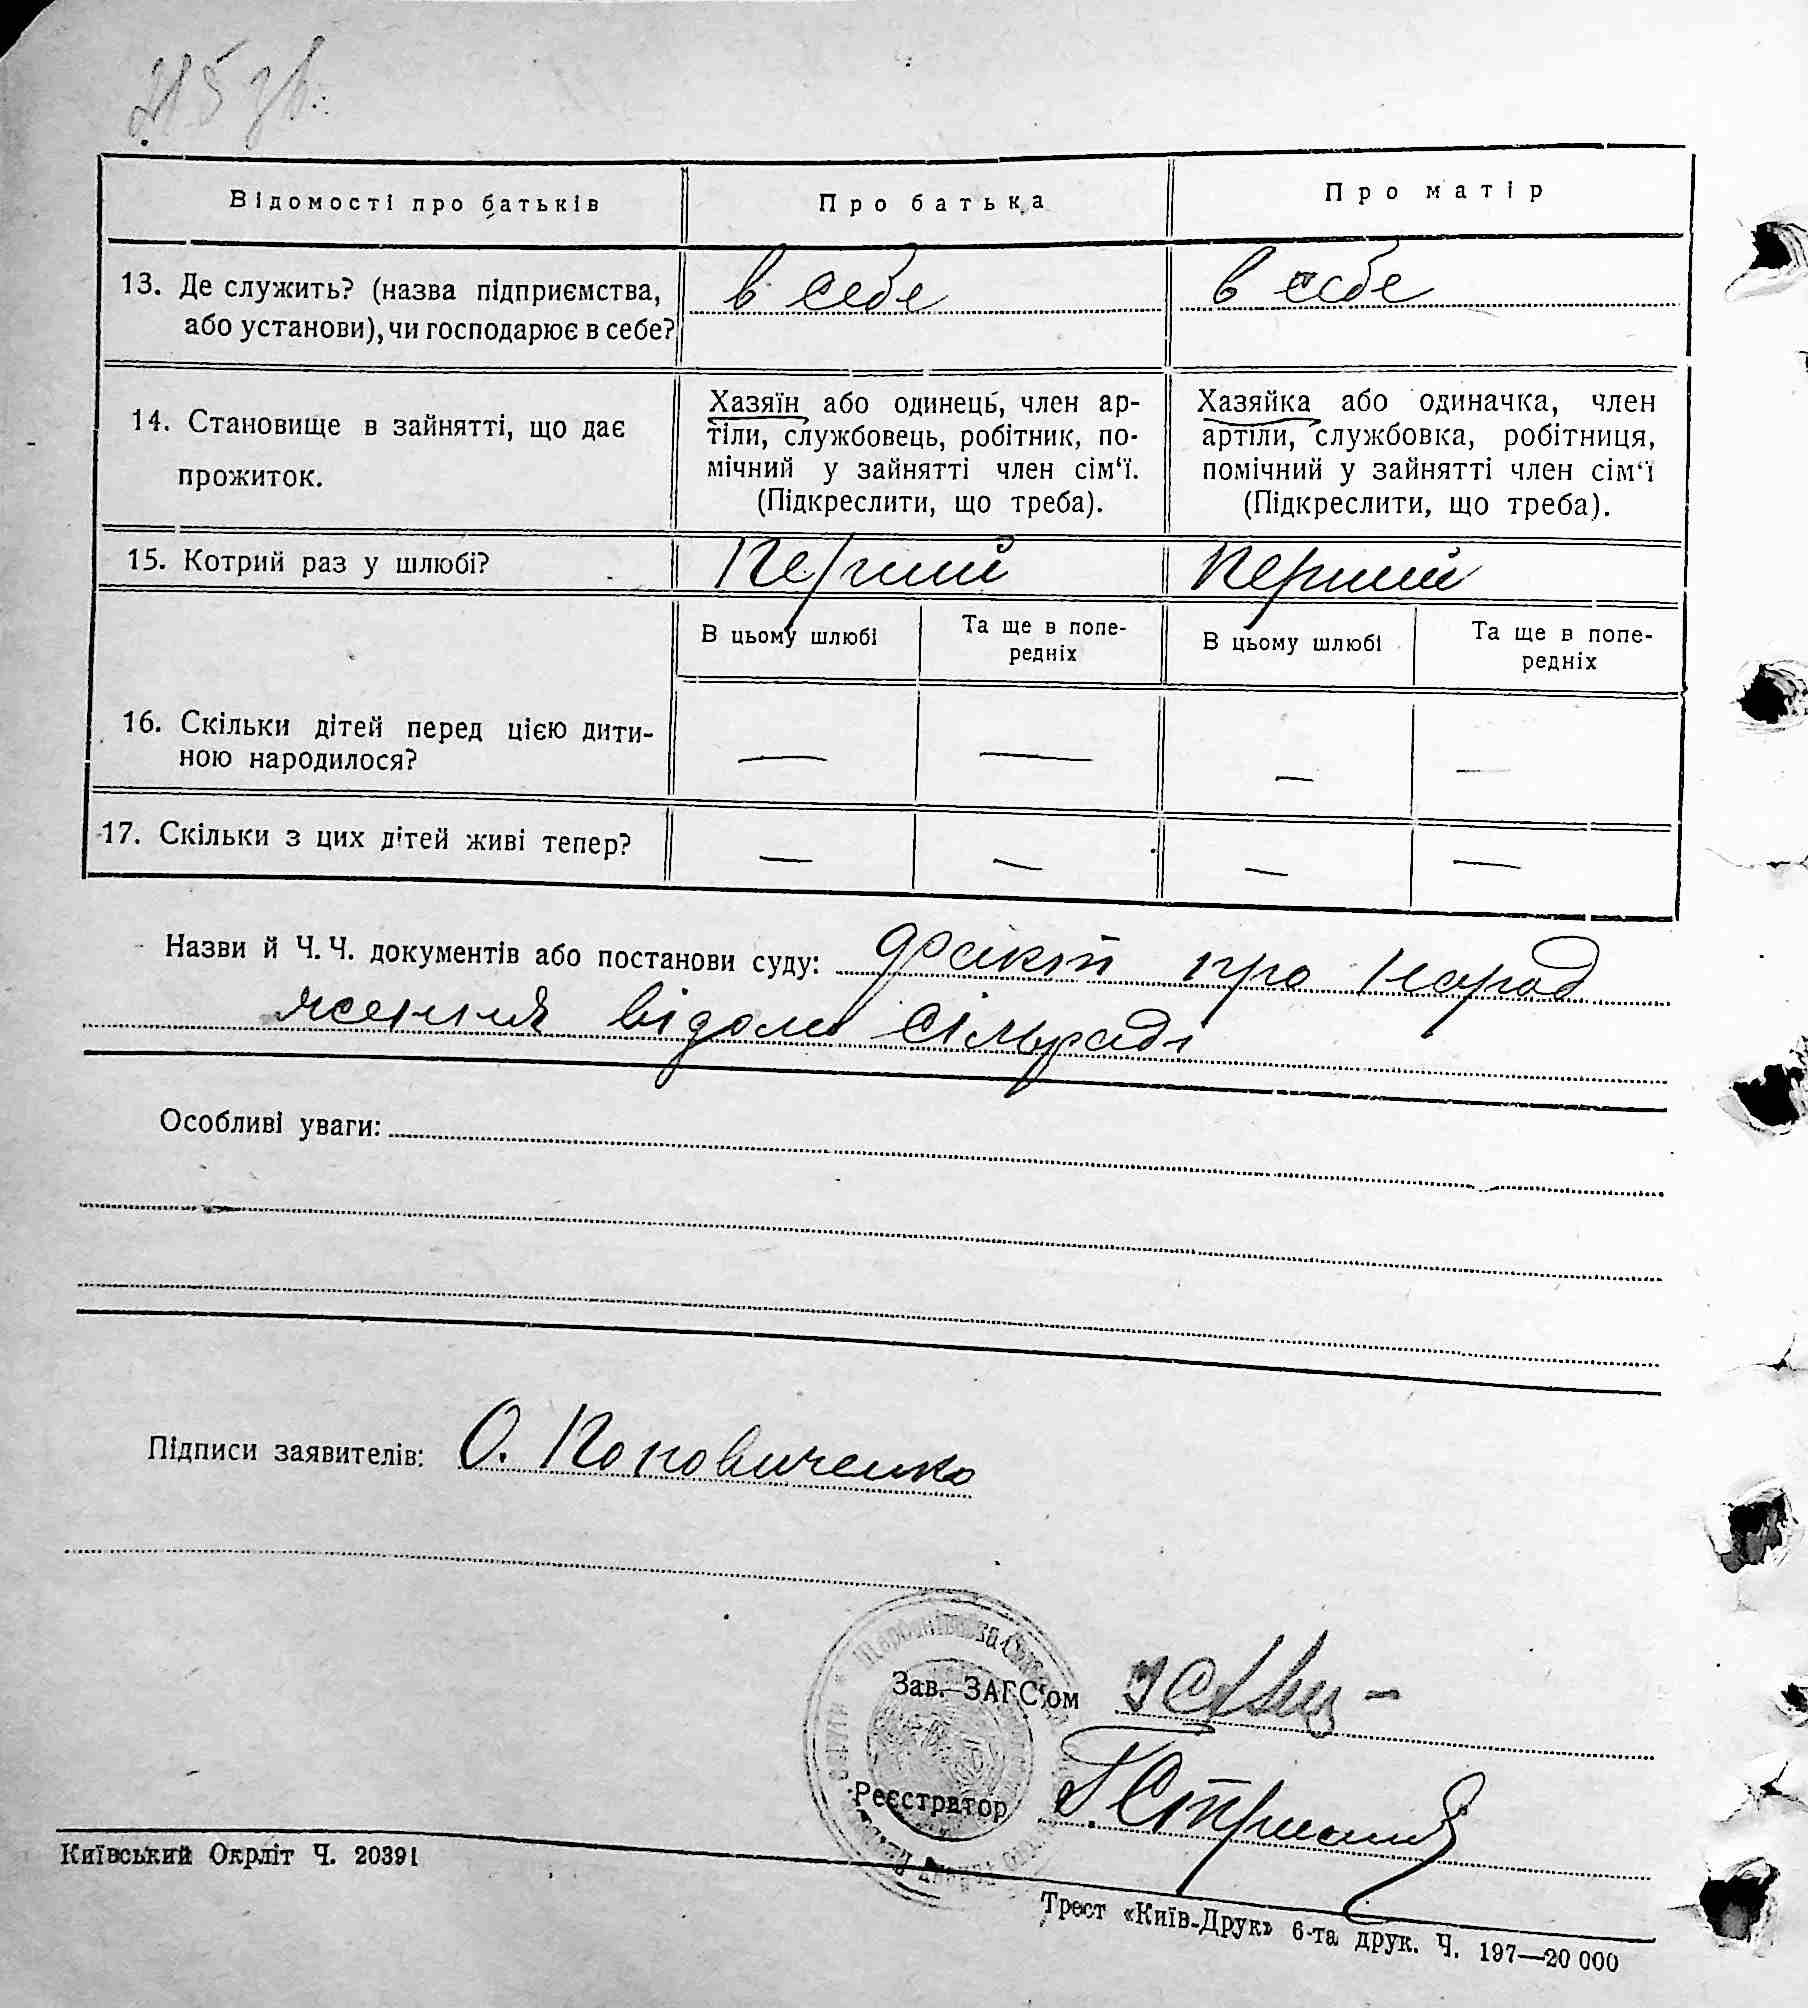 215 зв.
Відомості про батьків
Про батька
Про матір
13. Де служить? (назва підприємства,
або установи), чи господарює в себе?
в себе
в себе
14. Становище в зайнятті, що дає
прожиток.
Хазяїн або одинець, член ар-
тіли, службовець, робітник, по-
мічний у зайнятті член сім‘ї.
(Підкреслити, що треба).
Хазяйка або одиначка, член
артіли, службовка, робітниця,
помічний у зайнятті член сім‘ї
(Підкреслити, що треба).
15. Котрий раз у шлюбі?
Перший
Перший
В цьому шлюбі
Та ще в попе-
редніх
В цьому шлюбі
Та ще в попе-
редніх
16. Скільки дітей перед цією дити-
ною народилося?
— — — —
17. Скільки з цих дітей живі тепер?
— — — —
Назви й Ч. Ч. документів або постанови суду: факт про народ
ження відом сільраді
Особливі уваги:
Підписи заявителів: О. Поповиченко
Зав. ЗАГС‘ом
Реєстратор
Київський Окрліт Ч. 20391
Трест «Київ-Друк» 6-та друк. Ч. 197—20 000